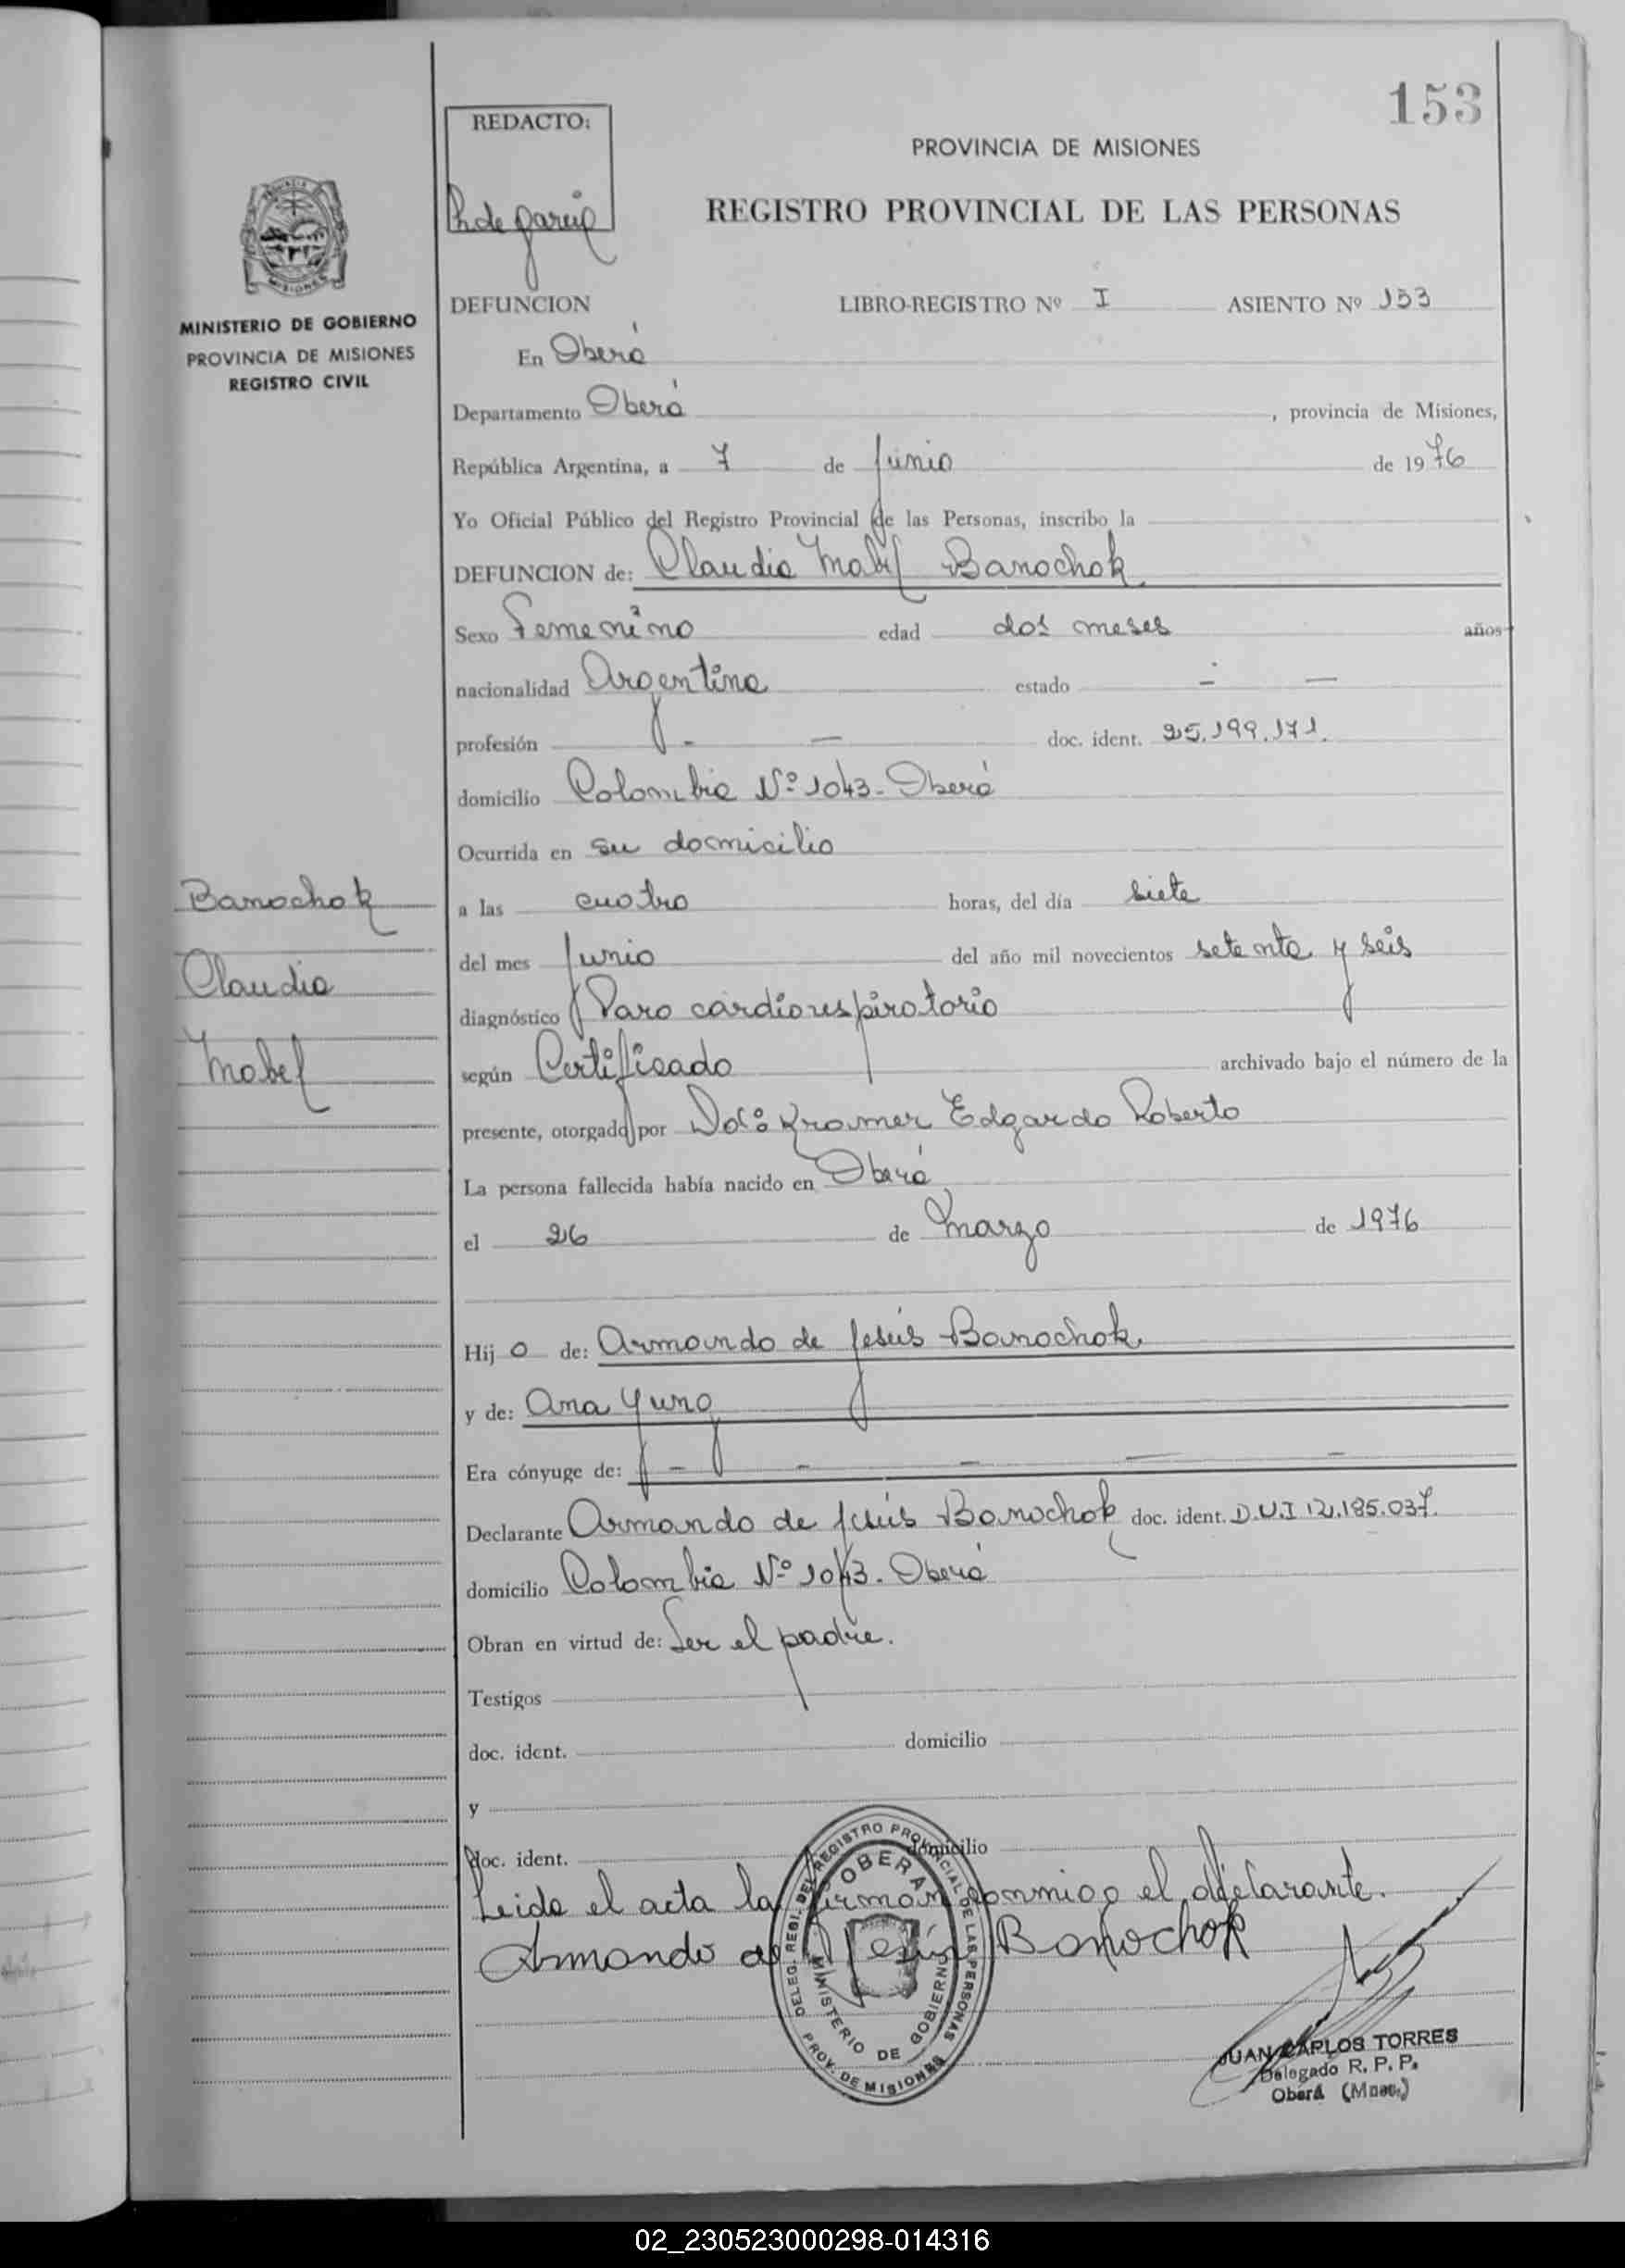 153
REDACTO:
PROVINCIA DE MISIONES
REGISTRO PROVINCIAL DE LAS PERSONAS
MINISTERIO DE GOBIERNO
PROVINCIA DE MISIONES
REGISTRO CIVIL
DEFUNCION LIBRO-REGISTRO Nº I ASIENTO Nº 153
En Oberá
Departamento Oberá , provincia de Misiones,
República Argentina, a 7 de Junio de 1976
Yo Oficial Público del Registro Provincial de las Personas, inscribo la
DEFUNCION de: Claudia Mabel Banochok
Sexo Femenino edad dos meses años
nacionalidad Argentina estado - —
profesión - — doc. ident. 25.199.171.
domicilio Colombia Nº 1043 - Oberá
Ocurrida en su domicilio
Banochok
Claudia
Mabel
a las cuatro horas, del día siete
del mes Junio del año mil novecientos setenta y seis
diagnóstico Paro cardiorespiratorio
según Certificado archivado bajo el número de la
presente, otorgado por Kramer Edgardo Roberto
La persona fallecida había nacido en Oberá
el 26 de Marzo de 1976
Hij o de: Armando de Jesús Banochok
y de: Ana Yung
Era cónyuge de: - - - — -
Declarante Armando de Jesús Banochok doc. ident. D.U.I 12.185.037.
domicilio Colombia Nº 1043. Oberá
Obran en virtud de: Ser el padre.
Testigos
doc. ident. domicilio
y
doc. ident. domicilio
Leida el acta la firman conmigo el declarante.
Armando de Jesús Banochok
DELEG. REGI. DEL REGISTRO PROVINCIAL DE LAS PERSONAS
OBERA
MINISTERIO DE GOBIERNO
PROV. DE MISIONES
JUAN CARLOS TORRES
Delegado R. P. P.
Oberá (Mnes.)
02_230523000298-014316